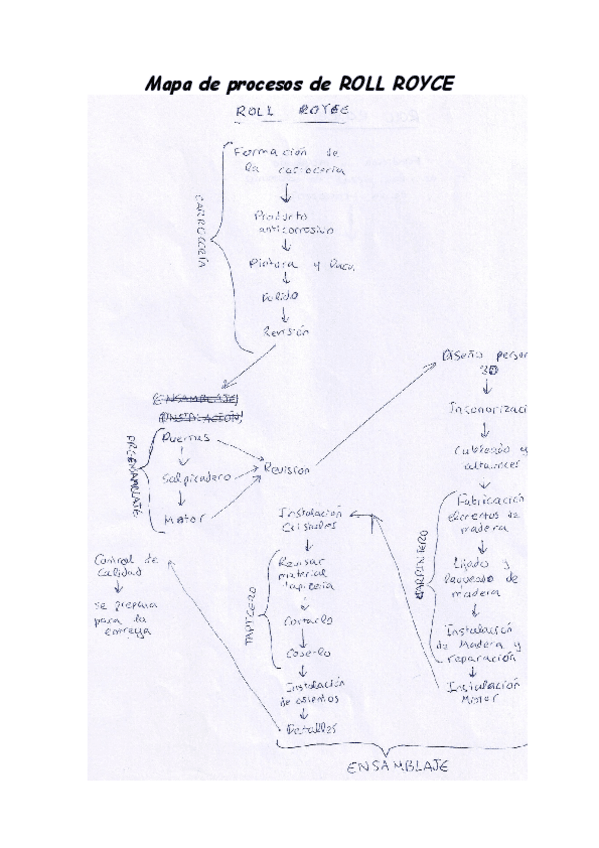 Mapa de procesos de ROLL ROYCE
ROLL ROYCE
Formación de
la carrocería
Producto
anticorrosivo
Pintura y
Pulido
Revisión
CARROCERÍA
ENSAMBLAJE
INSTALACIÓN
Puertas
Salpicadero
Motor
PREENSAMBLAJE
Revisión
Diseño person
3D
Insonorizaci
Cableado y
altavoces
Fabricación
elementos de
madera
Lijado y
laqueado de
madera
Instalación
de Madera y
reparación
CARPINTERO
Instalación
Motor
Instalación
Cristales
Revisar
material
tapicería
Cortarlo
Coserlo
TAPICERO
Instalación
de asientos
Detalles
ENSAMBLAJE
Control de
Calidad
se prepara
para la
entrega